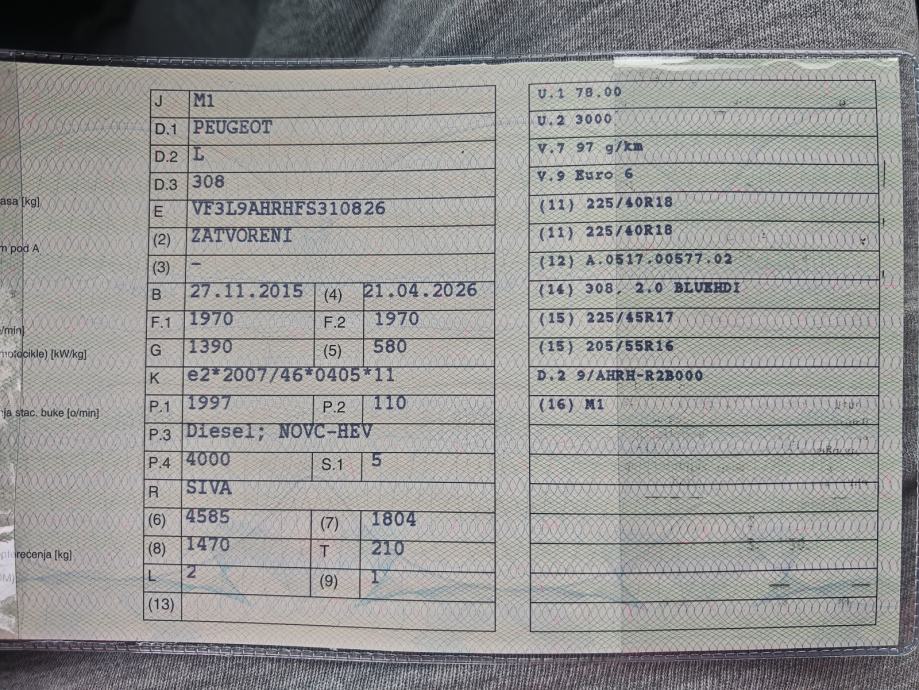 asa [kg]
m pod A
/min]
motocikle) [kW/kg]
nja stac. buke [o/min]
opterećenja [kg]
J M1
D.1 PEUGEOT
D.2 L
D.3 308
E VF3L9AHRHFS310826
(2) ZATVORENI
(3) –
B 27.11.2015 (4) 21.04.2026
F.1 1970 F.2 1970
G 1390 (5) 580
K e2*2007/46*0405*11
P.1 1997 P.2 110
P.3 Diesel; NOVC-HEV
P.4 4000 S.1 5
R SIVA
(6) 4585 (7) 1804
(8) 1470 T 210
L 2 (9) 1
(13)
U.1 78.00
U.2 3000
V.7 97 g/km
V.9 Euro 6
(11) 225/40R18
(11) 225/40R18
(12) A.0517.00577.02
(14) 308, 2.0 BLUEHDI
(15) 225/45R17
(15) 205/55R16
D.2 9/AHRH-R2B000
(16) M1